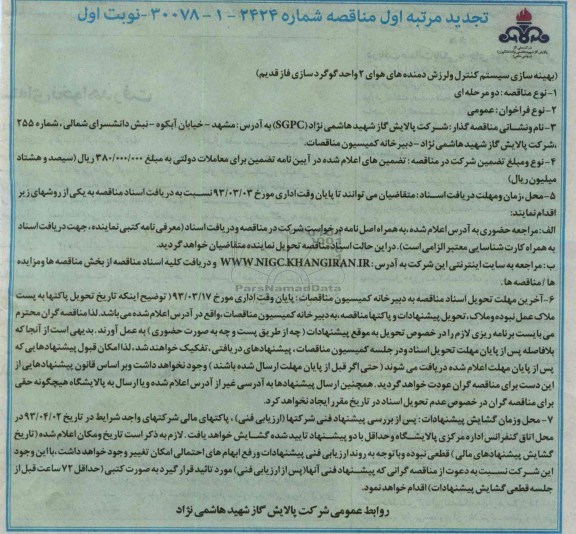 تجدید مرتبه اول مناقصه شماره ۲۴۲۴ - ۱ - ۳۰۰۷۸ - نوبت اول
(بهینه سازی سیستم کنترل ولرزش دمنده های هوای ۲ واحد گوگرد سازی فاز قدیم)
۱-نوع مناقصه: دو مرحله ای
۲-نوع فراخوان: عمومی
۳-نام ونشانی مناقصه گذار: شرکت پالایش گاز شهید هاشمی نژاد (SGPC) به آدرس: مشهد -خیابان آبکوه -نبش دانشسرای شمالی، شماره ۲۵۵
،شرکت پالایش گاز شهید هاشمی نژاد -دبیرخانه کمیسیون مناقصات.
۴-نوع ومبلغ تضمین شرکت در مناقصه: تضمین های اعلام شده در آیین نامه تضمین برای معاملات دولتی به مبلغ ۳۸۰/۰۰۰/۰۰۰ ریال (سیصد و هشتاد
میلیون ریال)
۵-محل،زمان ومهلت دریافت اسناد: متقاضیان می توانند تا پایان وقت اداری مورخ ۹۳/۰۳/۰۳ نسبت به دریافت اسناد مناقصه به یکی از روشهای زیر
اقدام نمایند:
الف: مراجعه حضوری به آدرس اعلام شده ،به همراه اصل نامه درخواست شرکت در مناقصه ودریافت اسناد (معرفی نامه کتبی نماینده ، جهت دریافت اسناد
به همراه کارت شناسایی معتبر الزامی است). در این حالت اسناد مناقصه تحویل نماینده متقاضیان خواهد گردید.
ب: مراجعه به سایت اینترنتی این شرکت به آدرس: WWW.NIGC.KHANGIRAN.IR و دریافت کلیه اسناد مناقصه از بخش مناقصه ها ومزایده
ها / مناقصه ها.
۶-آخرین مهلت تحویل اسناد مناقصه به دبیرخانه کمیسیون مناقصات: پایان وقت اداری مورخ ۹۳/۰۳/۱۷ ( توضیح اینکه تاریخ تحویل پاکتها به پست
ملاک عمل نبوده وملاک، تحویل پیشنهادات و پاکتها مناقصه ،به دبیر خانه کمیسیون مناقصات ،واقع در آدرس اعلام شده می باشد. لذا مناقصه گران محترم
می بایست برنامه ریزی لازم را در خصوص تحویل به موقع پیشنهادات (چه از طریق پست و چه به صورت حضوری ) به عمل آورند. بدیهی است از آنجا که
بلافاصله پس از پایان مهلت تحویل اسناد ودر جلسه کمیسیون مناقصات ، پیشنهادهای دریافتی ،تفکیک خواهند شد، لذا امکان قبول پیشنهادهایی که
پس از پایان مهلت اعلام شده دریافت می شوند ( حتی اگر قبل از پایان مهلت ارسال شده باشند ) وجود نخواهد داشت وبر اساس قانون پیشنهادهایی از
این دست برای مناقصه گران عودت خواهد گردید. همچنین ارسال پیشنهادها به آدرسی غیر از آدرس اعلام شده ویا ارسال به پالایشگاه هیچگونه حقی
برای مناقصه گران در خصوص عدم تحویل اسناد در تاریخ مقرر ایجاد نخواهد کرد.
۷- محل وزمان گشایش پیشنهادات: پس از بررسی پیشنهاد فنی شرکتها (ارزیابی فنی) ، پاکتهای مالی شرکتهای واجد شرایط در تاریخ ۹۳/۰۴/۰۲ در
محل اتاق کنفرانس اداره مرکزی پالایشگاه وحداقل با دو پیشنهاد تایید شده گشایش خواهد یافت . لازم به ذکر است تاریخ ومکان اعلام شده (تاریخ
گشایش پیشنهادهای مالی) قطعی نبوده وباتوجه به روند ارزیابی فنی پیشنهادات ورفع ابهام های احتمالی امکان تغییر وجود خواهد داشت ،با این وجود
این شرکت نسبت به دعوت از مناقصه گرانی که پیشنهاد فنی آنها (پس از ارزیابی فنی) مورد تائید قرار گیرد به صورت کتبی (حداقل ۷۲ ساعت قبل از
جلسه قطعی گشایش پیشنهادات) اقدام خواهد نمود.
روابط عمومی شرکت پالایش گاز شهید هاشمی نژاد
ParsNamadData